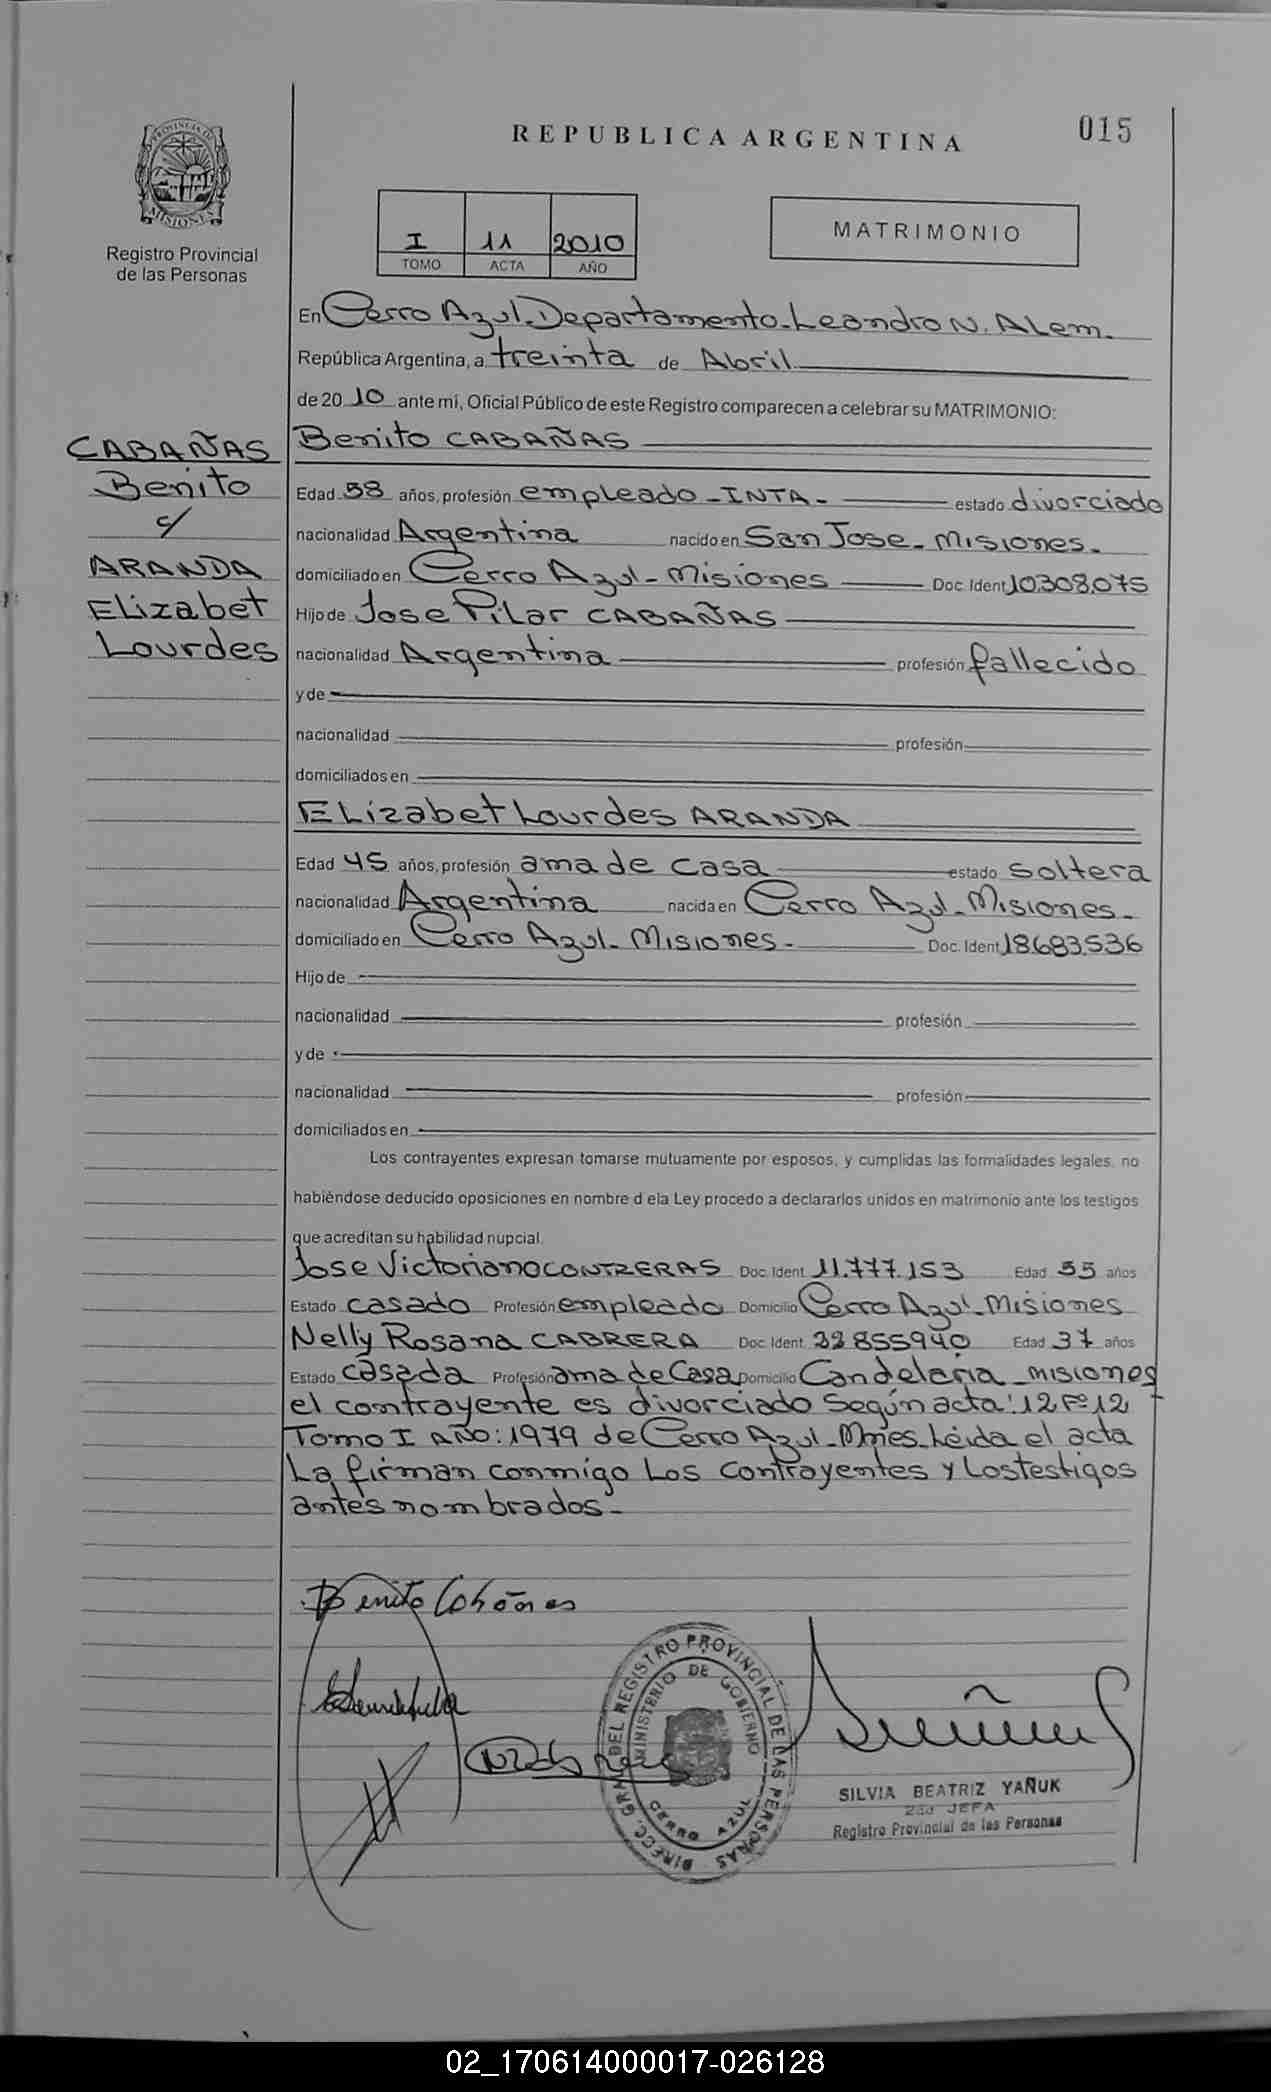 REPUBLICA ARGENTINA
015
PROVINCIA DE
MISIONES
Registro Provincial
de las Personas
I 11 2010
TOMO ACTA AÑO
MATRIMONIO
En Cerro Azul-Departamento-Leandro N. ALem.
República Argentina, a treinta de Abril
de 20 10 ante mí, Oficial Público de este Registro comparecen a celebrar su MATRIMONIO:
CABAÑAS
Benito
c/
ARANDA
ELizabet
Lourdes
Benito CABAÑAS
Edad 58 años, profesión empleado-INTA- estado divorciado
nacionalidad Argentina nacido en San Jose-Misiones.
domiciliado en Cerro Azul-Misiones Doc. Ident 10.308.075
Hijo de Jose Pilar CABAÑAS
nacionalidad Argentina profesión fallecido
y de
nacionalidad profesión
domiciliados en
ELizabet Lourdes ARANDA
Edad 45 años, profesión ama de casa estado soltera
nacionalidad Argentina nacida en Cerro Azul-Misiones-
domiciliado en Cerro Azul-Misiones- Doc. Ident 18.683.536
Hijo de
nacionalidad profesión
y de
nacionalidad profesión
domiciliados en
Los contrayentes expresan tomarse mutuamente por esposos, y cumplidas las formalidades legales, no
habiéndose deducido oposiciones en nombre d ela Ley procedo a declararlos unidos en matrimonio ante los testigos
que acreditan su habilidad nupcial.
Jose Victoriano CONTRERAS Doc. Ident. 11.777.153 Edad 55 años
Estado casado Profesión empleado Domicilio Cerro Azul-Misiones
Nelly Rosana CABRERA Doc. Ident. 22855940 Edad 37 años
Estado casada Profesión ama de Casa Domicilio Candelaria-misiones
el contrayente es divorciado Según acta: 12 Fº 12
Tomo I AÑO: 1979 de Cerro Azul-Mnes. Leida el acta
La firman conmigo Los contrayentes y Los testigos
antes nombrados-
Benito Cabañas
DIRECC. GRAL. DEL REGISTRO PROVINCIAL DE LAS PERSONAS
MINISTERIO DE GOBIERNO
CERRO AZUL
SILVIA BEATRIZ YAÑUK
2da JEFA
Registro Provincial de las Personas
02_170614000017-026128